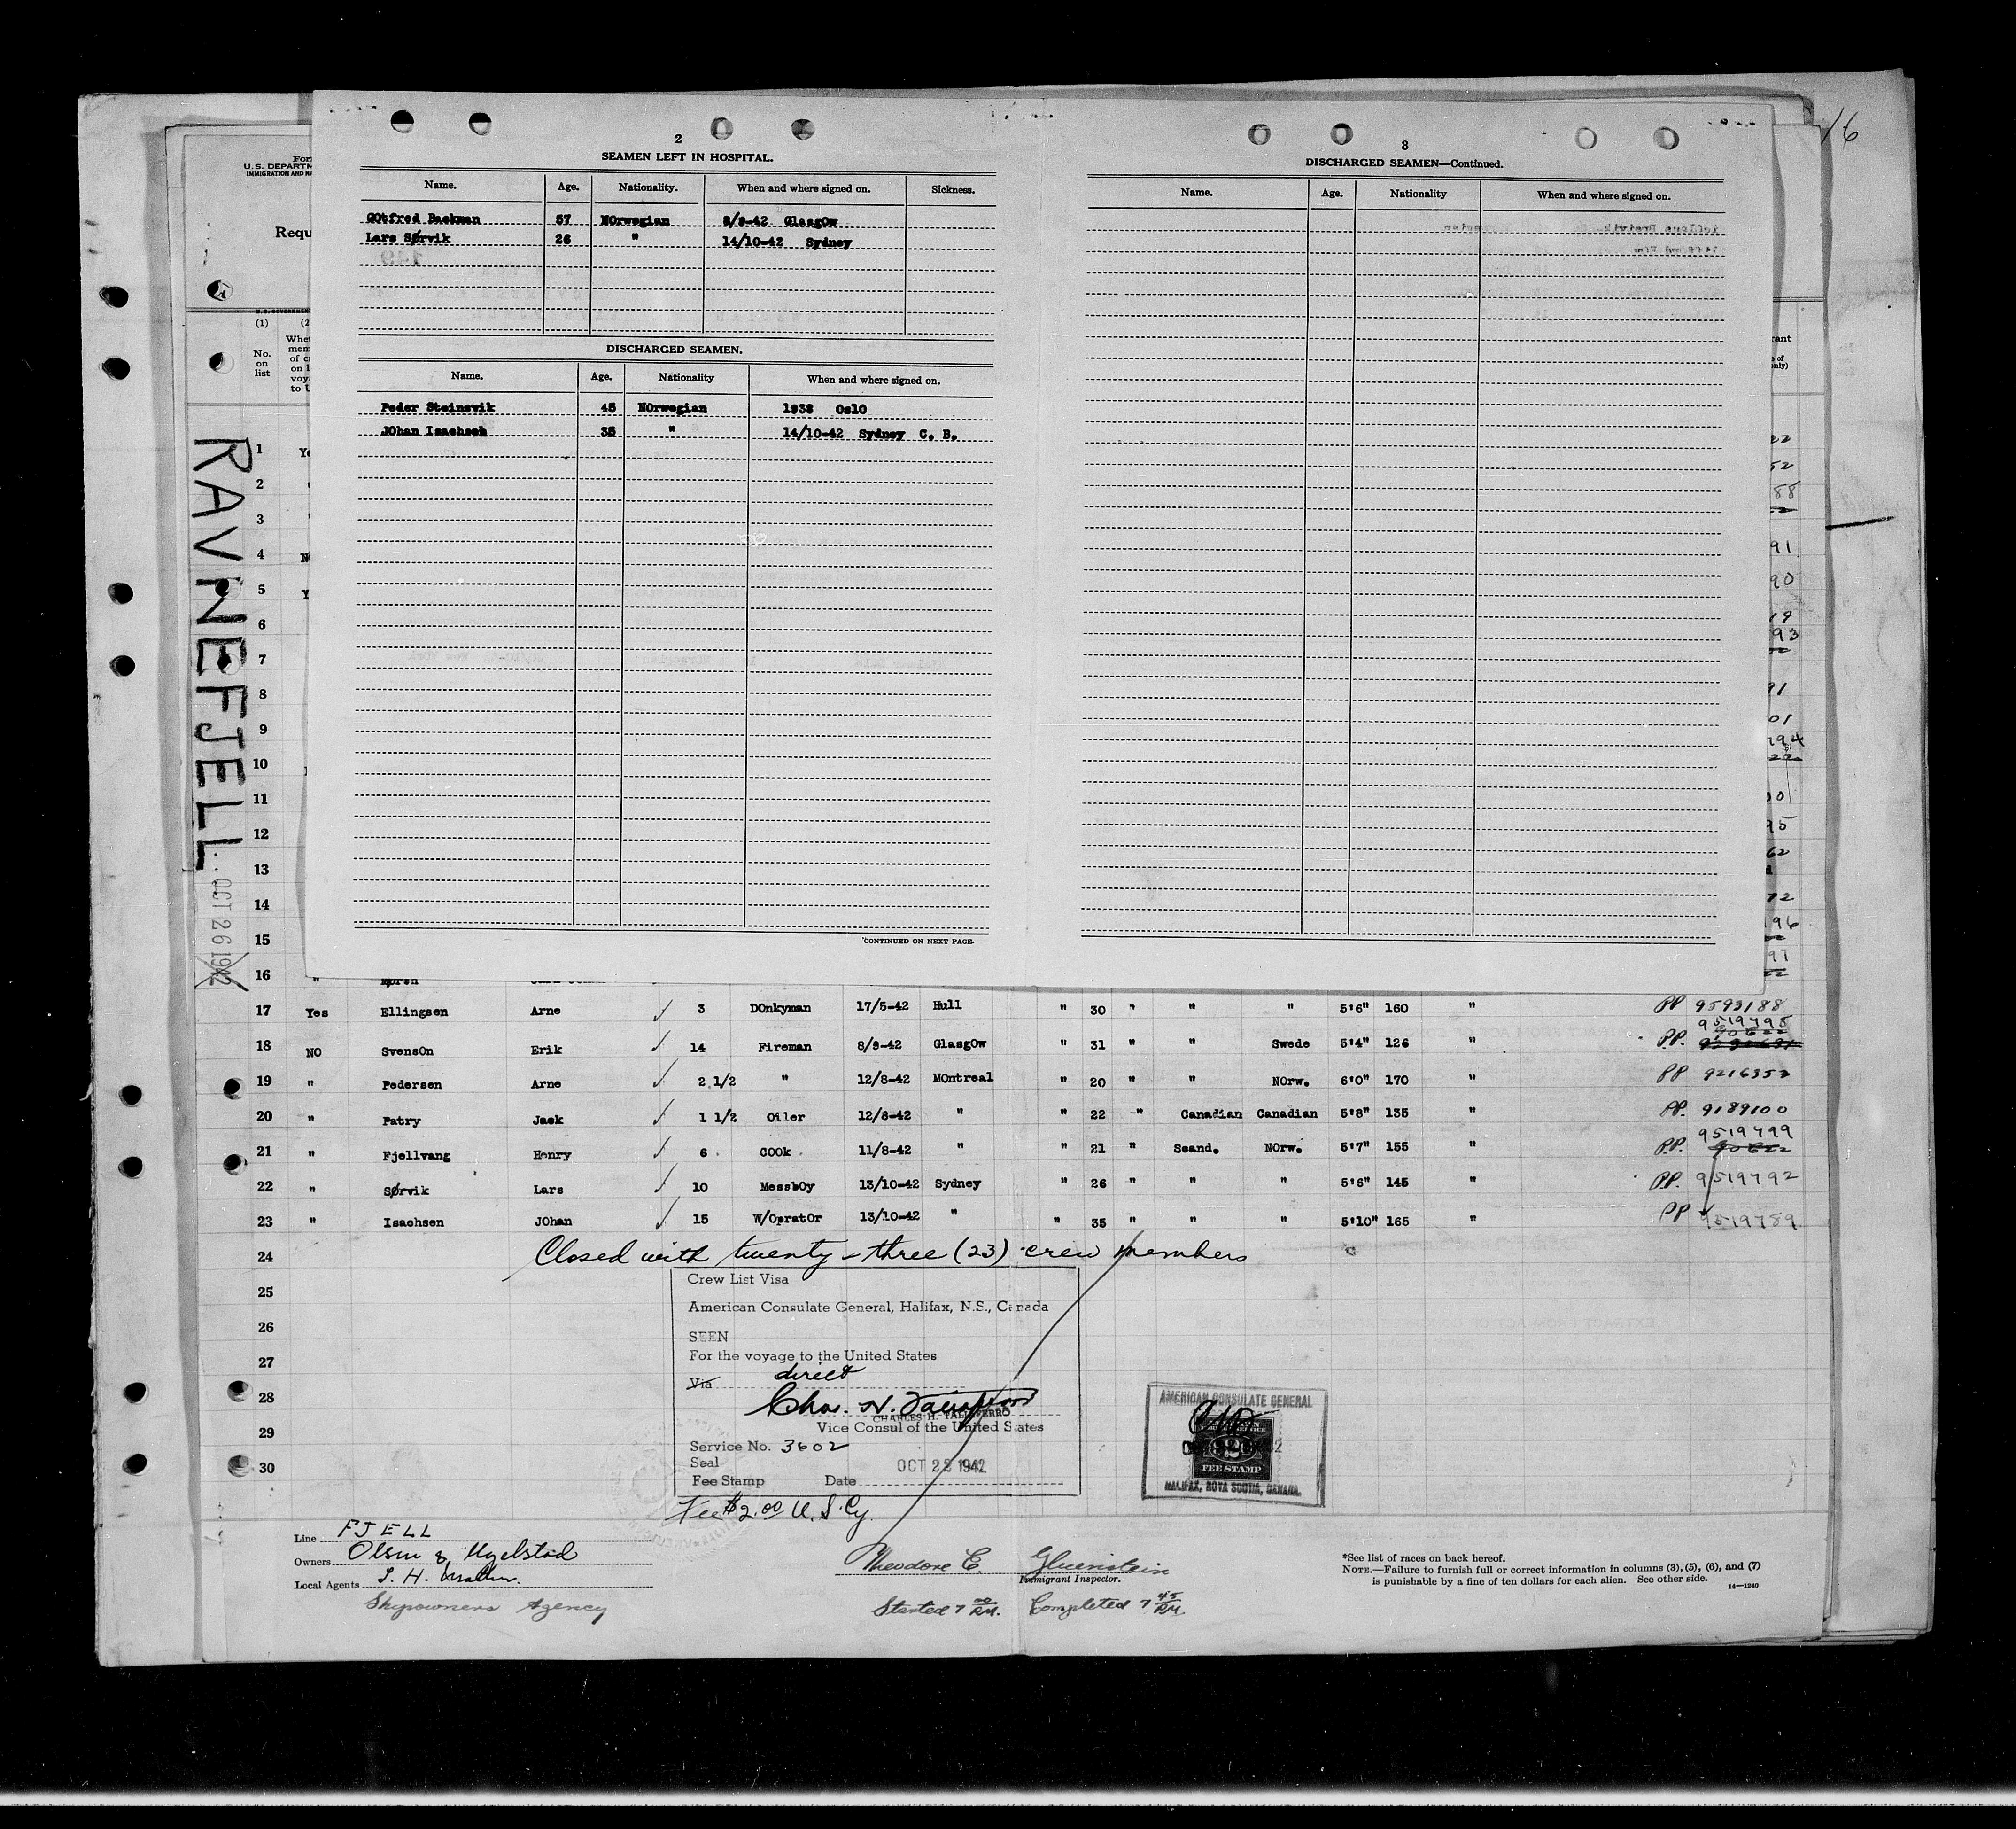 16
2
SEAMEN LEFT IN HOSPITAL.
Name. Age. Nationality. When and where signed on. Sickness.
GOtfred Backman 57 NOrwegian 8/9-42 GlasgOw
Lars Sørvik 26 " 14/10-42 Sydney
DISCHARGED SEAMEN.
Name. Age. Nationality When and where signed on.
Peder Steinsvik 45 NOrwegian 1938 OslO
JOhan Isachsen 35 " 14/10-42 Sydney C. B.
CONTINUED ON NEXT PAGE.
3
DISCHARGED SEAMEN—Continued.
Name. Age. Nationality When and where signed on.
U.S. DEPARTM
IMMIGRATION AND NA
Requ
(1) (2
No. on list
Whet
mem
of c
on l
voy
to U
RAVNEFJELL
OCT 26 1942
1
2
3
4
5
6
7
8
9
10
11
12
13
14
15
16 "
17 Yes Ellingsen Arne 3 DOnkyman 17/5-42 Hull " 30 " " " 5'6" 160 " PP 9593188
18 NO SvensOn Erik 14 Fireman 8/9-42 GlasgOw " 31 " " Swede 5'4" 126 " PP. 9519798
19 " Pedersen Arne 2 1/2 " 12/8-42 MOntreal " 20 " " NOrw. 6'0" 170 " PP 9216353
20 " Patry Jack 1 1/2 Oiler 12/8-42 " " 22 " Canadian Canadian 5'8" 135 " PP. 9189100
21 " Fjellvang Henry 6 COOk 11/8-42 " " 21 " Scand. NOrw. 5'7" 155 " PP. 9519799
22 " Sørvik Lars 10 MessbOy 13/10-42 Sydney " 26 " " " 5'6" 145 " PP. 9519792
23 " Isachsen JOhan 15 W/OpratOr 13/10-42 " " 35 " " " 5'10" 165 " PP 9519789
24 Closed with twenty-three (23) crew members
25
26
27
28
29
30
Crew List Visa
American Consulate General, Halifax, N.S., Canada
SEEN
For the voyage to the United States
Via direct
CHARLES H. TALIAFERRO
Vice Consul of the United States
Service No. 3602
Seal OCT 23 1942
Fee Stamp Date
Fee $2.00 U.S. Cy.
AMERICAN CONSULATE GENERAL
FEE STAMP
HALIFAX, NOVA SCOTIA, CANADA.
Line FJELL
Owners Olsen & Ugelstad
Local Agents
Shipowners Agency
Theodore E.
Immigrant Inspector.
Started 7 00 P.M. Completed 7 45 P.M.
*See list of races on back hereof.
NOTE.—Failure to furnish full or correct information in columns (3), (5), (6), and (7)
is punishable by a fine of ten dollars for each alien. See other side. 14—1240